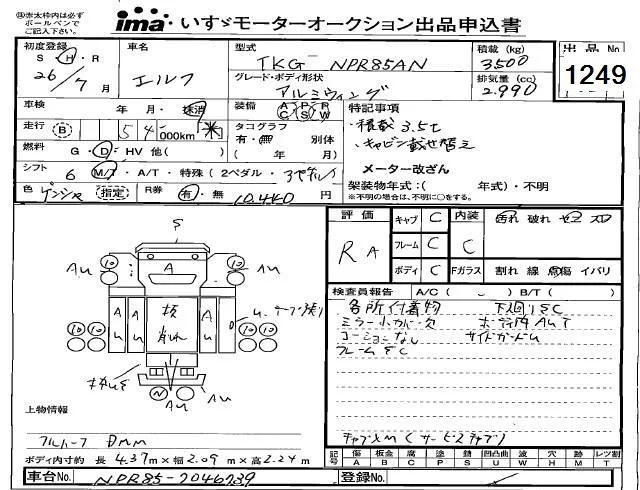 ㊟赤太枠内は必ず
ボールペンで
ご記入下さい。
ima いすゞモーターオークション出品申込書
初度登録 S・H・R 26/7 月
車名 エルフ
型式 TKG- NPR85AN
積載 (kg) 3500
出品No 1249
グレード・ボディ形状 アルミウイング
排気量 (cc) 2.990
車検 年 月・抹消
装備 A P R C S W
特記事項
走行 B 54 000km
タコグラフ 有・無 別体
・積載 3.5t
・キャビン載せ替え
燃料 G・D・HV 他( )
( 年 月)
メーター改ざん
シフト 6 M/T・A/T・特殊(2ペダル・3ペダル)
架装物年式:( 年式)・不明
※不明の場合は、不明に○をする。
色 ゲンシャ 指定 R券 有・無 10.440 円
評価 キャブ C 内装 汚れ 破れ ヤニ スレ
RA フレーム C C
ボディ C Fガラス 割れ 線 点傷 イバリ
検査員報告 A/C( ) B/T( )
各所付着物 下回りSC
ミラー小カバー欠
コーションなし サイドガードU
フレームSC
S
AU A AU
AU 板 AU
AU
上物情報
ボディ内寸約 長 4.37m×幅 2.09 m×高 2.24 m
記号 傷 板金 腐 塗 錆 凹凸曲 波 穴 跡 レツ割
A B C P S U W H M T
車台No. NPR85-7046739
登録No.